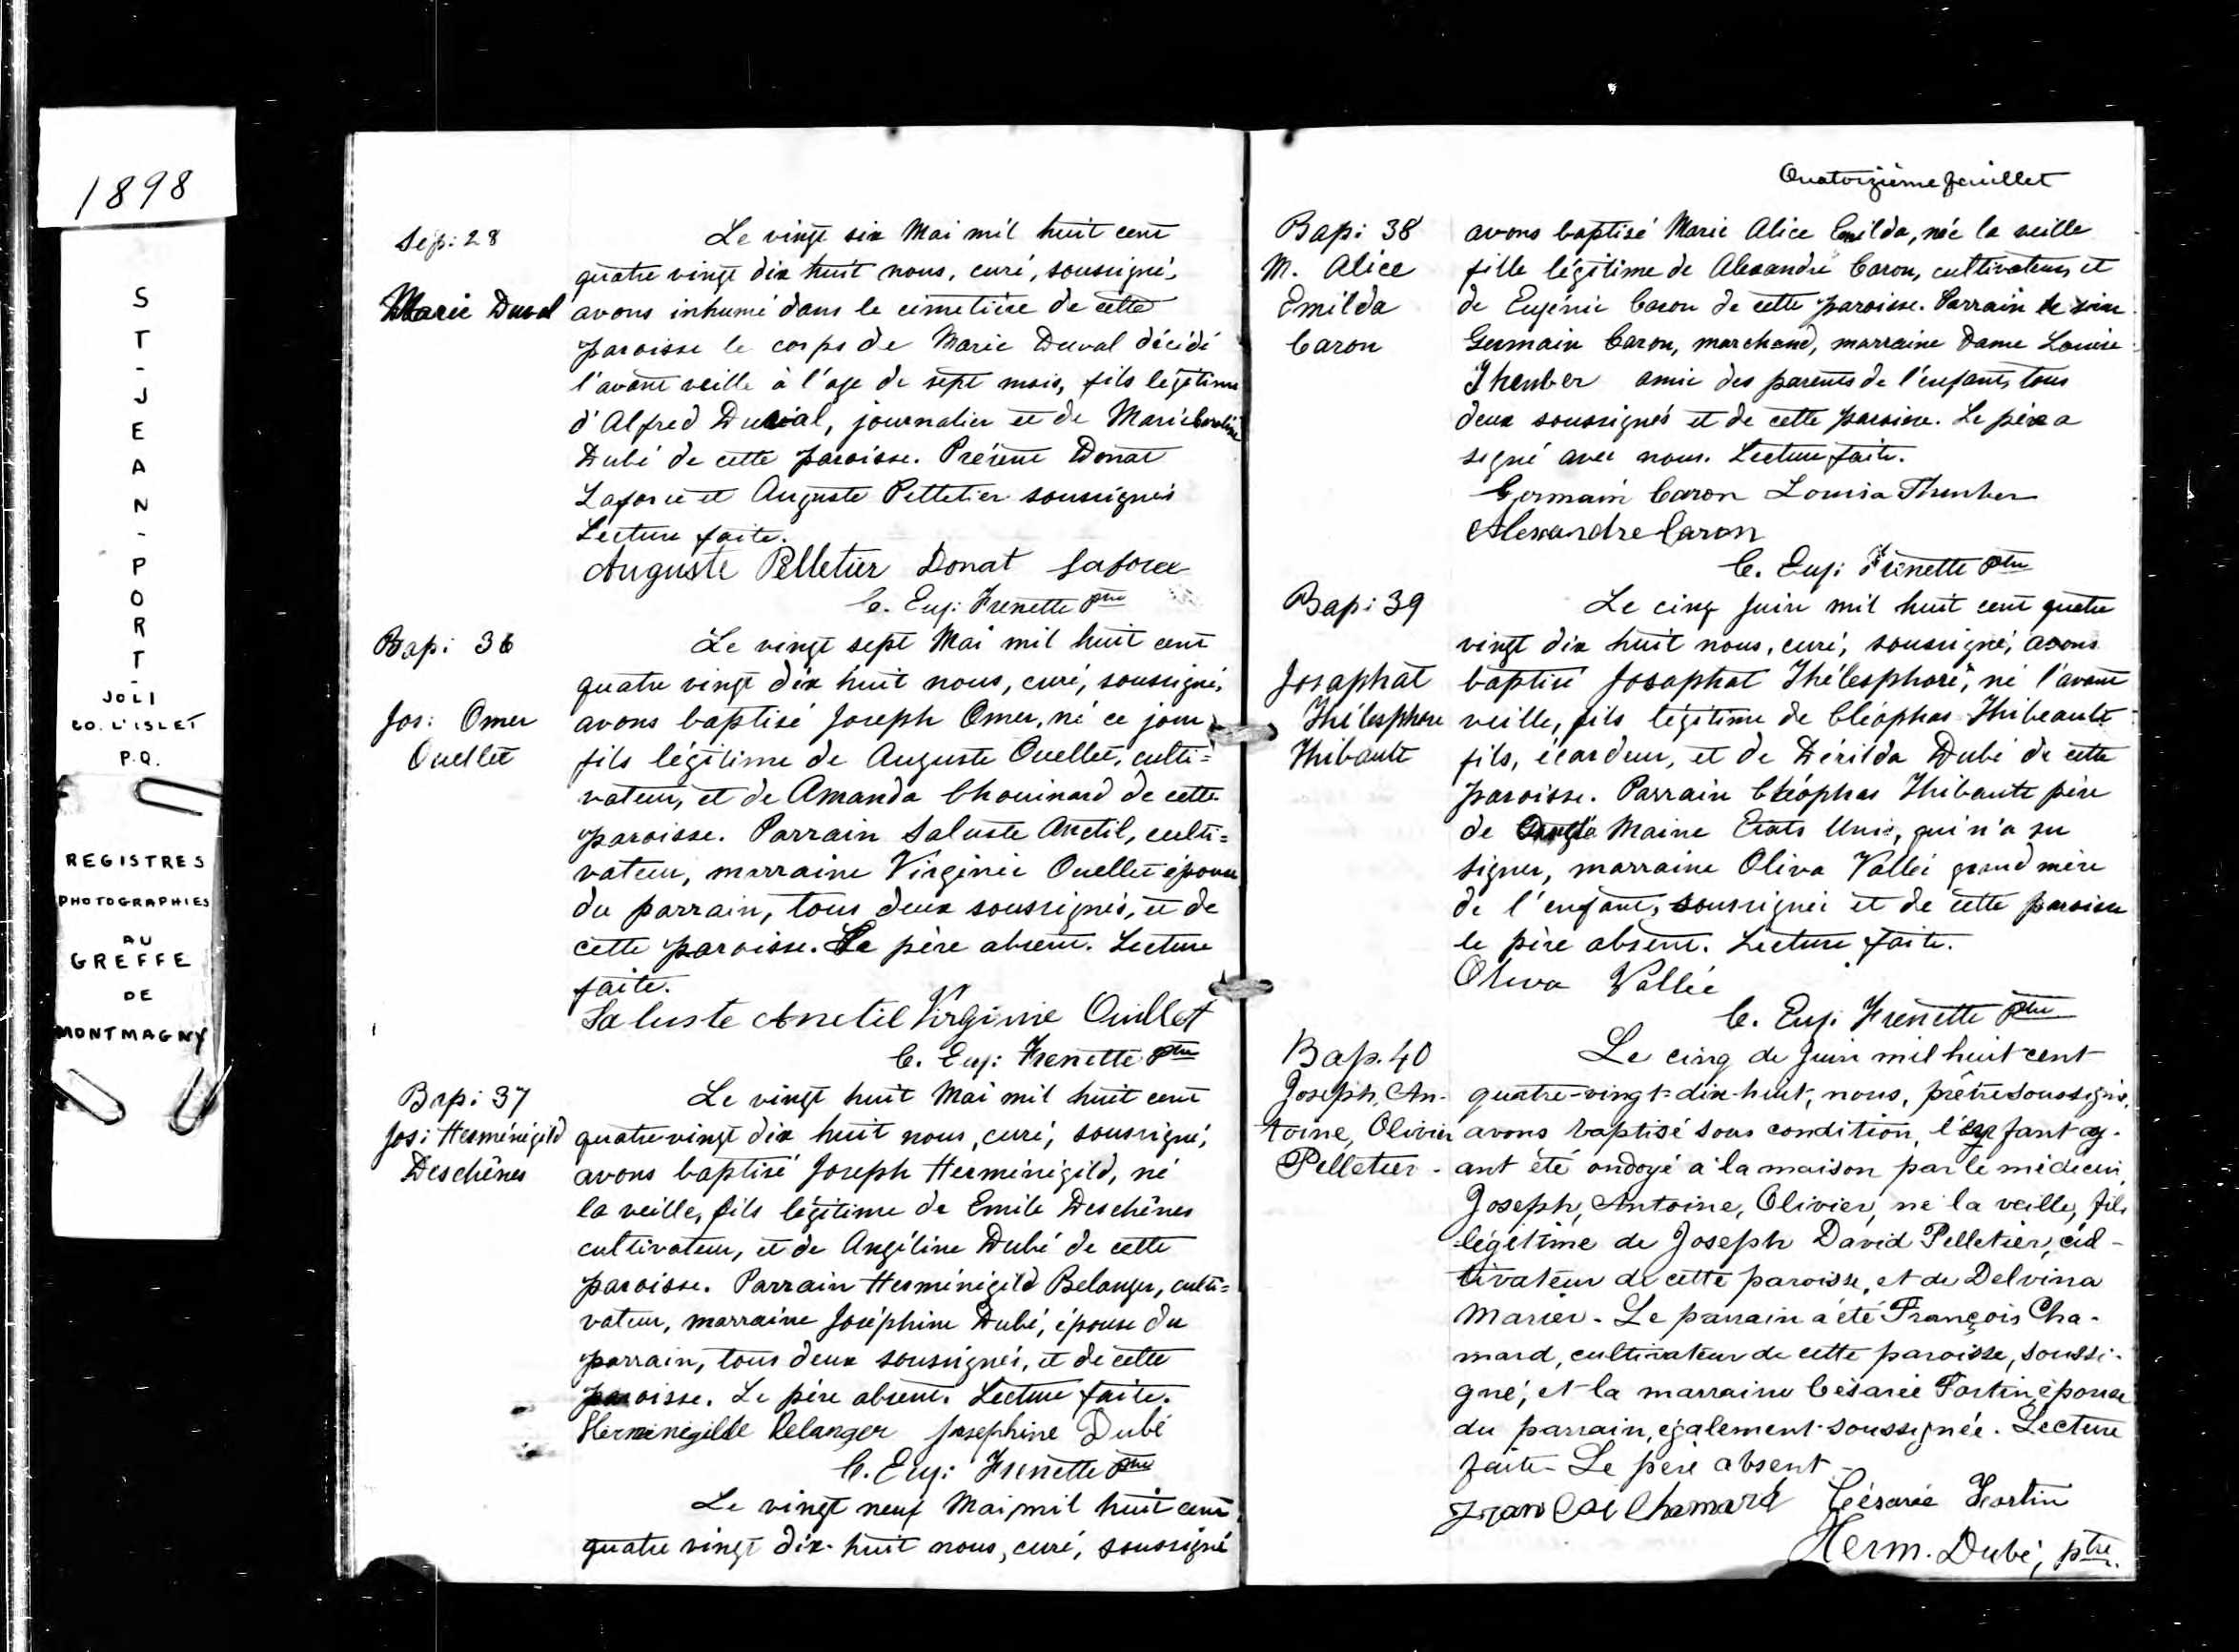 1898
S
T
-
J
E
A
N
-
P
O
R
T
-
JOLI
CO. L'ISLET
P.Q.
REGISTRES
PHOTOGRAPHIES
AU
GREFFE
DE
MONTMAGNY
Sép: 28
Marie Duval
Le vingt six Mai mil huit cent
quatre vingt dix huit nous, curé, soussigné,
avons inhumé dans le cimetière de cette
paroisse le corps de Marie Duval décédé
l'avant veille à l'age de sept mois, fils légitime
d'Alfred Duval, journalier et de Marie Caroline
Dubé de cette paroisse. Présent Donat
Laforce et Auguste Pelletier soussignés
Lecture faite.
Auguste Pelletier Donat Laforce
C. Eug: Frenette ptre
Bap: 36
Jos: Omer
Ouellet
Le vingt sept Mai mil huit cent
quatre vingt dix huit nous, curé, soussigné,
avons baptisé Joseph Omer, né ce jour,
fils légitime de Auguste Ouellet, culti=
vateur, et de Amanda Chouinard de cette
paroisse. Parrain Saluste Anctil, culti=
vateur, marraine Virginie Ouellet épouse
du parrain, tous deux soussignés, et de
cette paroisse. Le père absent. Lecture
faite.
Saluste Anctil Virginie Ouillet
C. Eug: Frenette ptre
Bap: 37
Jos: Herménégild
Deschênes
Le vingt huit Mai mil huit cent
quatre vingt dix huit nous, curé, soussigné,
avons baptisé Joseph Herménégild, né
la veille, fils légitime de Emile Deschênes
cultivateur, et de Angéline Dubé de cette
paroisse. Parrain Herménégild Belanger, culti=
vateur, marraine Joséphine Dubé, épouse du
parrain, tous deux soussignés, et de cette
paroisse. Le père absent. Lecture faite.
Herménégilde Belanger Josephine Dubé
C. Eug: Frenette ptre
Le vingt neuf Mai mil huit cent
quatre vingt dix-huit nous, curé, soussigné
Quatorzième feuillet
Bap: 38
M. Alice
Emilda
Caron
avons baptisé Marie Alice Emilda, née la veille
fille légitime de Alexandre Caron, cultivateur, et
de Eugénie Caron de cette paroisse. Parrain le sieur
Germain Caron, marchand, marraine Dame Louise
Thurber amie des parents de l'enfant, tous
deux soussignés et de cette paroisse. Le père a
signé avec nous. Lecture faite.
Germain Caron Louisa Thurber
Alexandre Caron
C. Eug: Frenette ptre
Bap: 39
Josaphat
Thélesphore
Thibault
Le cinq Juin mil huit cent quatre
vingt dix huit nous, curé, soussigné, avons
baptisé Josaphat Thélesphore, né l'avant
veille, fils légitime de Cléophas Thibeault
fils, écardeur, et de Dérilda Dubé de cette
paroisse. Parrain Cléophas Thibault père
de Maine Etats Unis, qui n'a su
signer, marraine Oliva Vallée grand mère
de l'enfant, soussignée et de cette paroisse
le père absent. Lecture faite.
Oliva Vallée
C. Eug. Frenette ptre
Bap. 40
Joseph, An-
toine, Olivier
Pelletier -
Le cinq de Juin mil huit cent
quatre-vingt-dix-huit, nous, prêtre soussigné,
avons baptisé sous condition, l'enfant ay-
ant été ondoyé à la maison par le médecin,
Joseph, Antoine, Olivier, né la veille, fils
légitime de Joseph David Pelletier, cul-
tivateur de cette paroisse, et de Delvina
Marier. Le parrain a été François Cha-
mard, cultivateur de cette paroisse, soussi-
gné, et la marraine Césarée Fortin, épouse
du parrain, également soussignée. Lecture
faite. Le père absent -
François Chamard Césarée Fortin
Herm. Dubé, ptre.